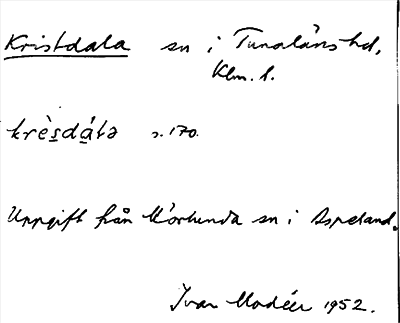 Kristdala sn i Tunaläns hd,
Klm. l.
krèsdálə s. 170.
Uppgift från Mörlunda sn i Aspeland.
Ivar Modéer 1952.